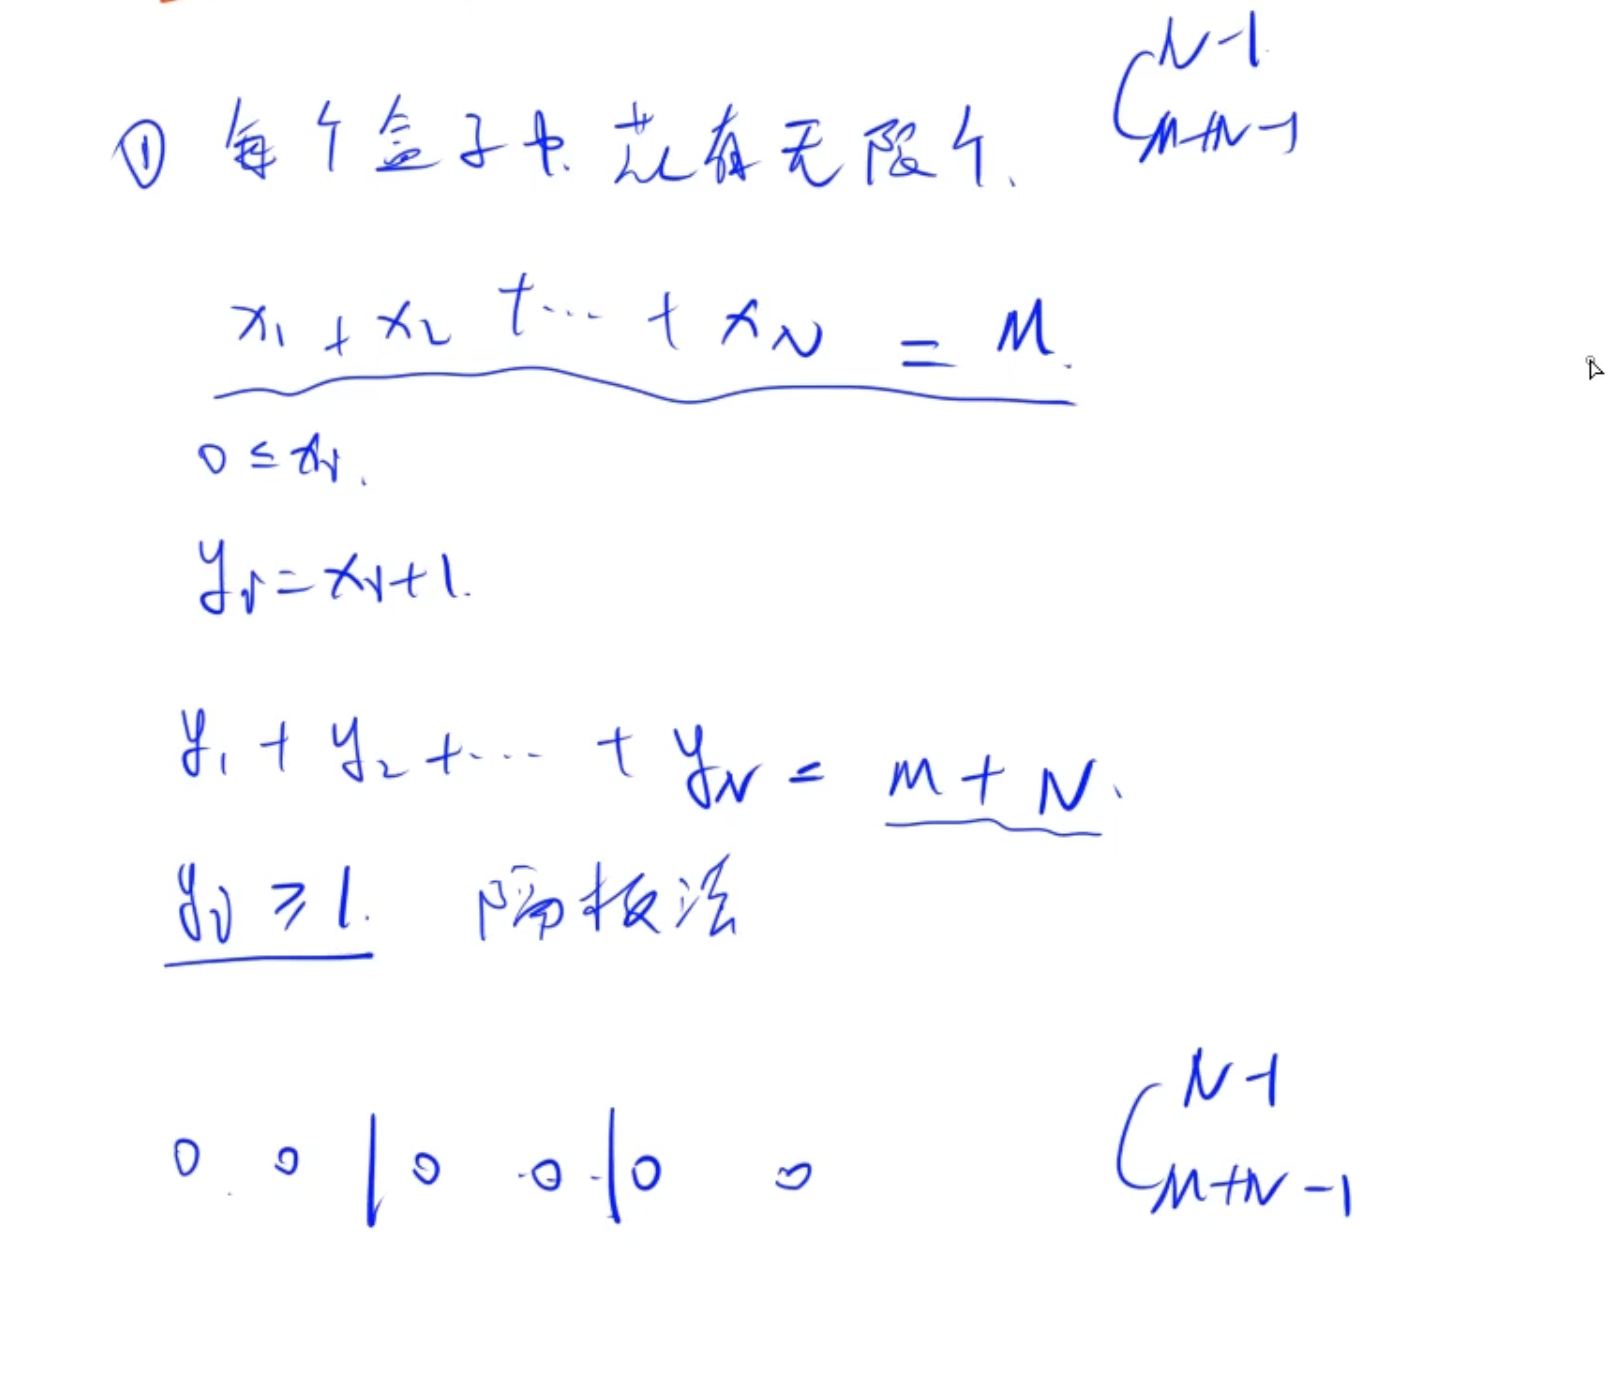 ① 每个盒子中.花有无限个. C_{M+N-1}^{N-1}
x₁ + x₂ + ... + x_N = M.
0 ≤ xᵢ.
yᵢ = xᵢ + 1.
y₁ + y₂ + ... + y_N = M + N.
yᵢ ≥ 1. 隔板法
0 0 | 0 0 | 0 0 C_{M+N-1}^{N-1}